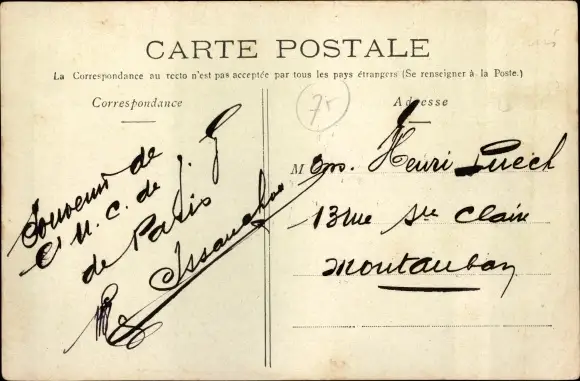 CARTE POSTALE
La Correspondance au recto n'est pas acceptée par tous les pays étrangers (Se renseigner à la Poste.)
Correspondance
Souvenir de
U. C. de J. G
de Paris
Adresse
75
M Henri Puech
13 rue Ste Claire
Montauban